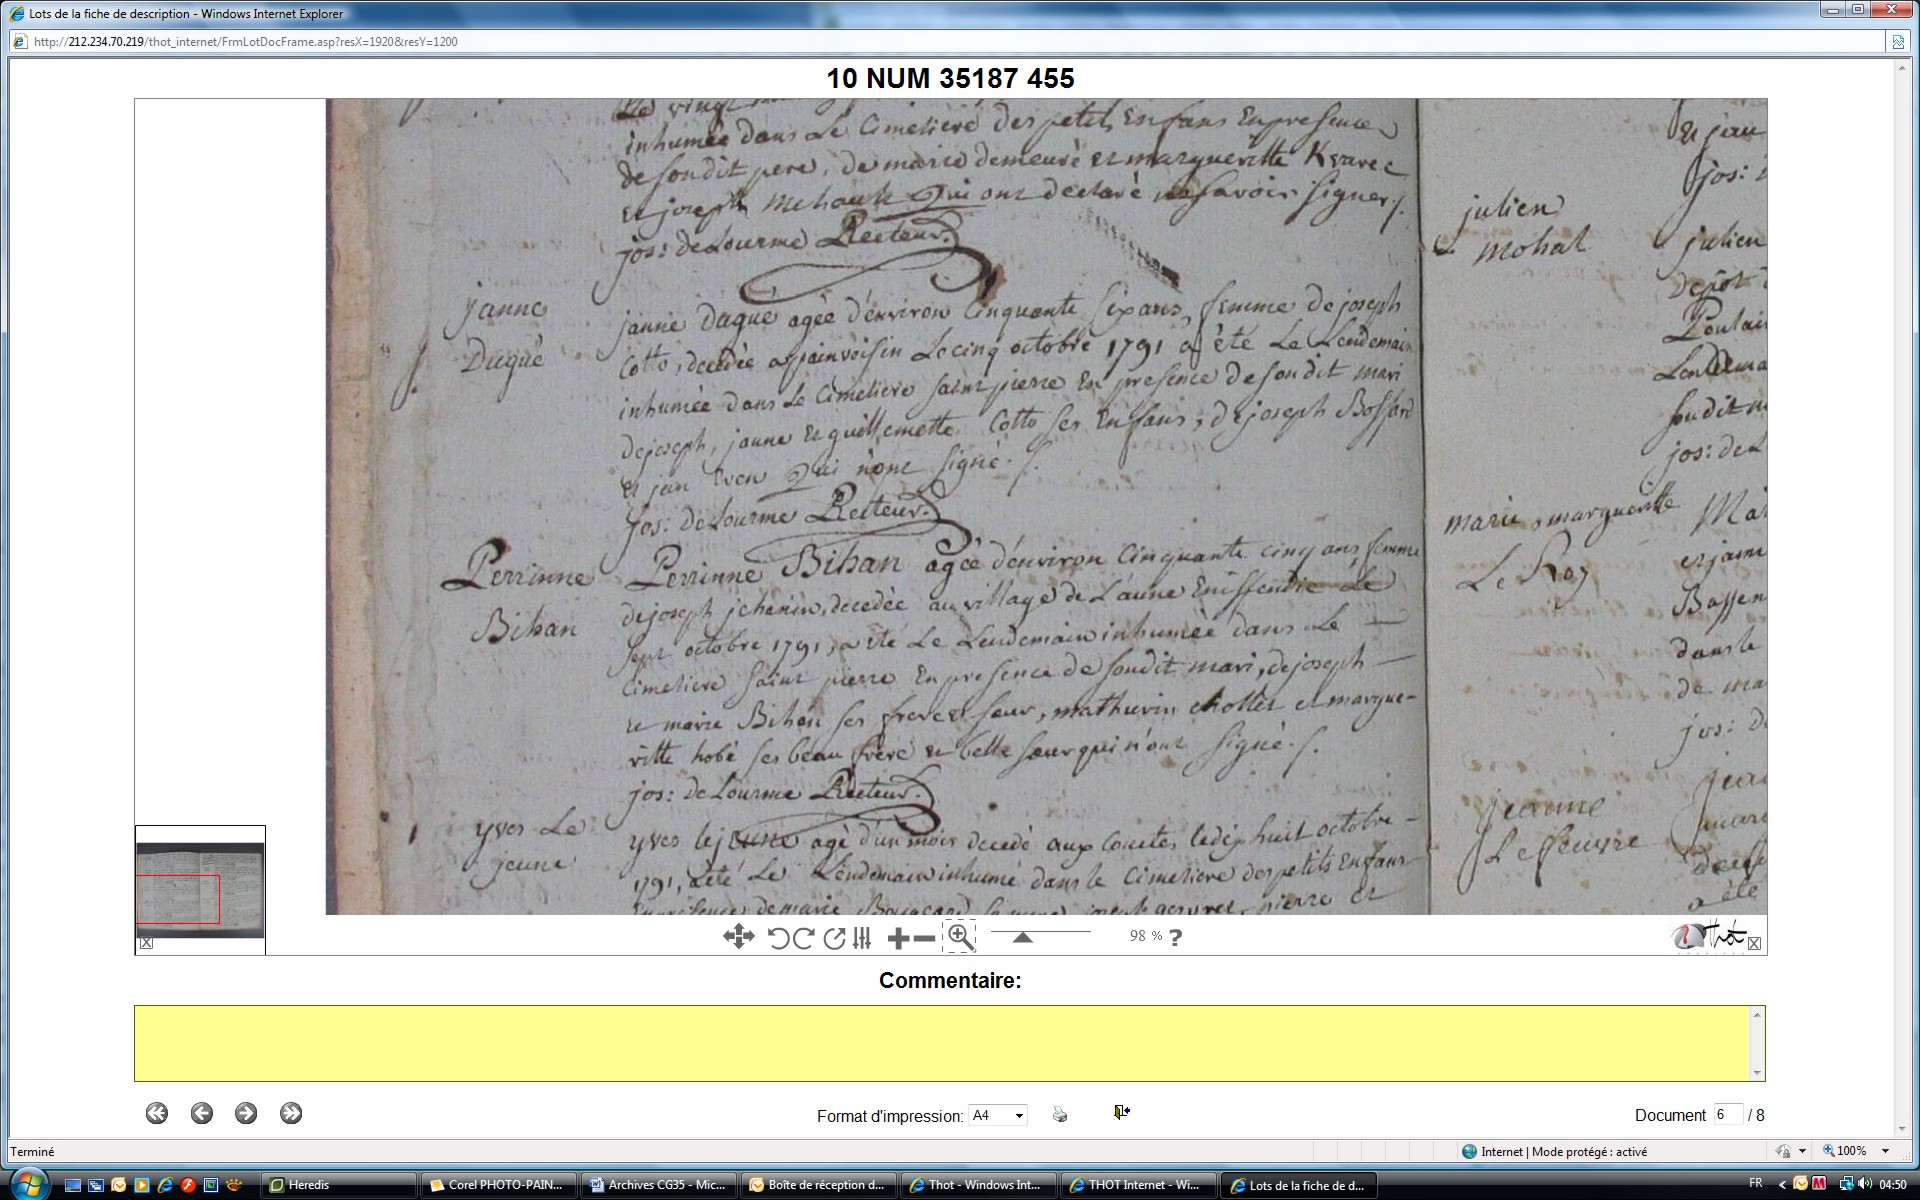 Lots de la fiche de description - Windows Internet Explorer
http://212.234.70.219/thot_internet/FrmLotDocFrame.asp?resX=1920&resY=1200
10 NUM 35187 455
Le vingt
inhumée dans Le Cimetiere des petits Enfans En presence
de son dit pere, de marie demeuré et margueritte Kvarec
et joseph Mehault Qui ont declaré ne savoir signer /.
jos: de Lourme Recteur.
janne
Dugué
janne Dugué agée d'environ Cinquante six ans, femme de joseph
Cotto, decedée a painvoisin Le cinq octobre 1791 a été Le Lendemain
inhumée dans Le Cimetiere saint pierre En presence de son dit mari
de joseph, janne et guillemette Cotto ses Enfans, de joseph Bossard
et jan Even Qui n'ont signé ./.
jos: de Lourme Recteur.
Perrinne
Bihan
Perrinne Bihan agée d'environ Cinquante cinq ans femme
de joseph jchanin, decedée au village de Laune En iffendic Le
sept octobre 1791, a été Le Lendemain inhumée dans Le
Cimetiere saint pierre En presence de son dit mari, de joseph
et marie Bihan ses frere et seur, mathurin chollet et margue-
ritte hobé ses beau frere et belle seur qui n'ont signé ./.
jos: de Lourme Recteur.
yves Le
jeune
yves lejeune agé d'un mois decedé aux Couetes le dix huit octobre
1791, a été Le Lendemain inhumé dans le Cimetiere des petits Enfans
En presence de marie pierre et
julien
mohat
marie, marguerite
Le Roy
jeanne
Lefeuvre
Et jan
jos:
julien
depot
Poulai
Lendema
son dit m
jos: de L
Mar
et jann
Bassen
dans le
de ma
jos: d
a été
98 %
?
Thot
Commentaire:
Format d'impression: A4
Document 6 / 8
Terminé
Internet | Mode protégé : activé
100%
Heredis
Corel PHOTO-PAIN...
Archives CG35 - Mic...
Boîte de réception d...
Thot - Windows Int...
THOT Internet - Wi...
Lots de la fiche de d...
FR
04:50